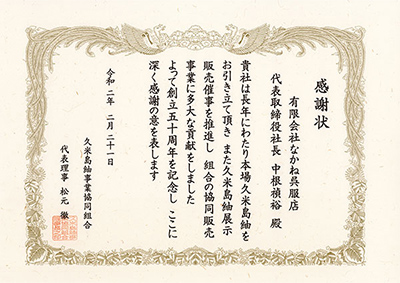 感謝状
有限会社なかね呉服店
代表取締役社長 中根禎裕 殿
貴社は長年にわたり本場久米島紬を
お引き立て頂き また久米島紬展示
販売催事を推進し 組合の協同販売
事業に多大な貢献をしました
よって創立五十周年を記念し ここに
深く感謝の意を表します
令和二年 二月二十一日
久米島紬事業協同組合
代表理事 松元 徹